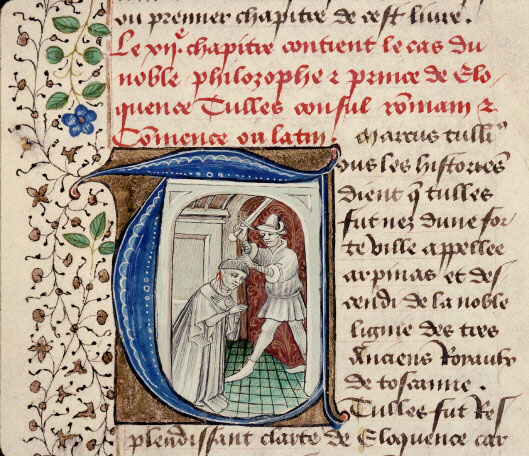 ou premier chapitre de cest livre.
Le xije. chapitre contient le cas du
noble philozophe & prince de Elo-
quence Tulles consul romain &
Comence ou latin. Marcus tulli
Tous les histores
dient q̄ tulles
fut nez dune for-
te ville appellee
arpinas et des-
cendi de la noble
lignie des tres
Anciens Royaulx
de toscanne.
Tulles fut Res-
plendissant clarte de Eloquence car